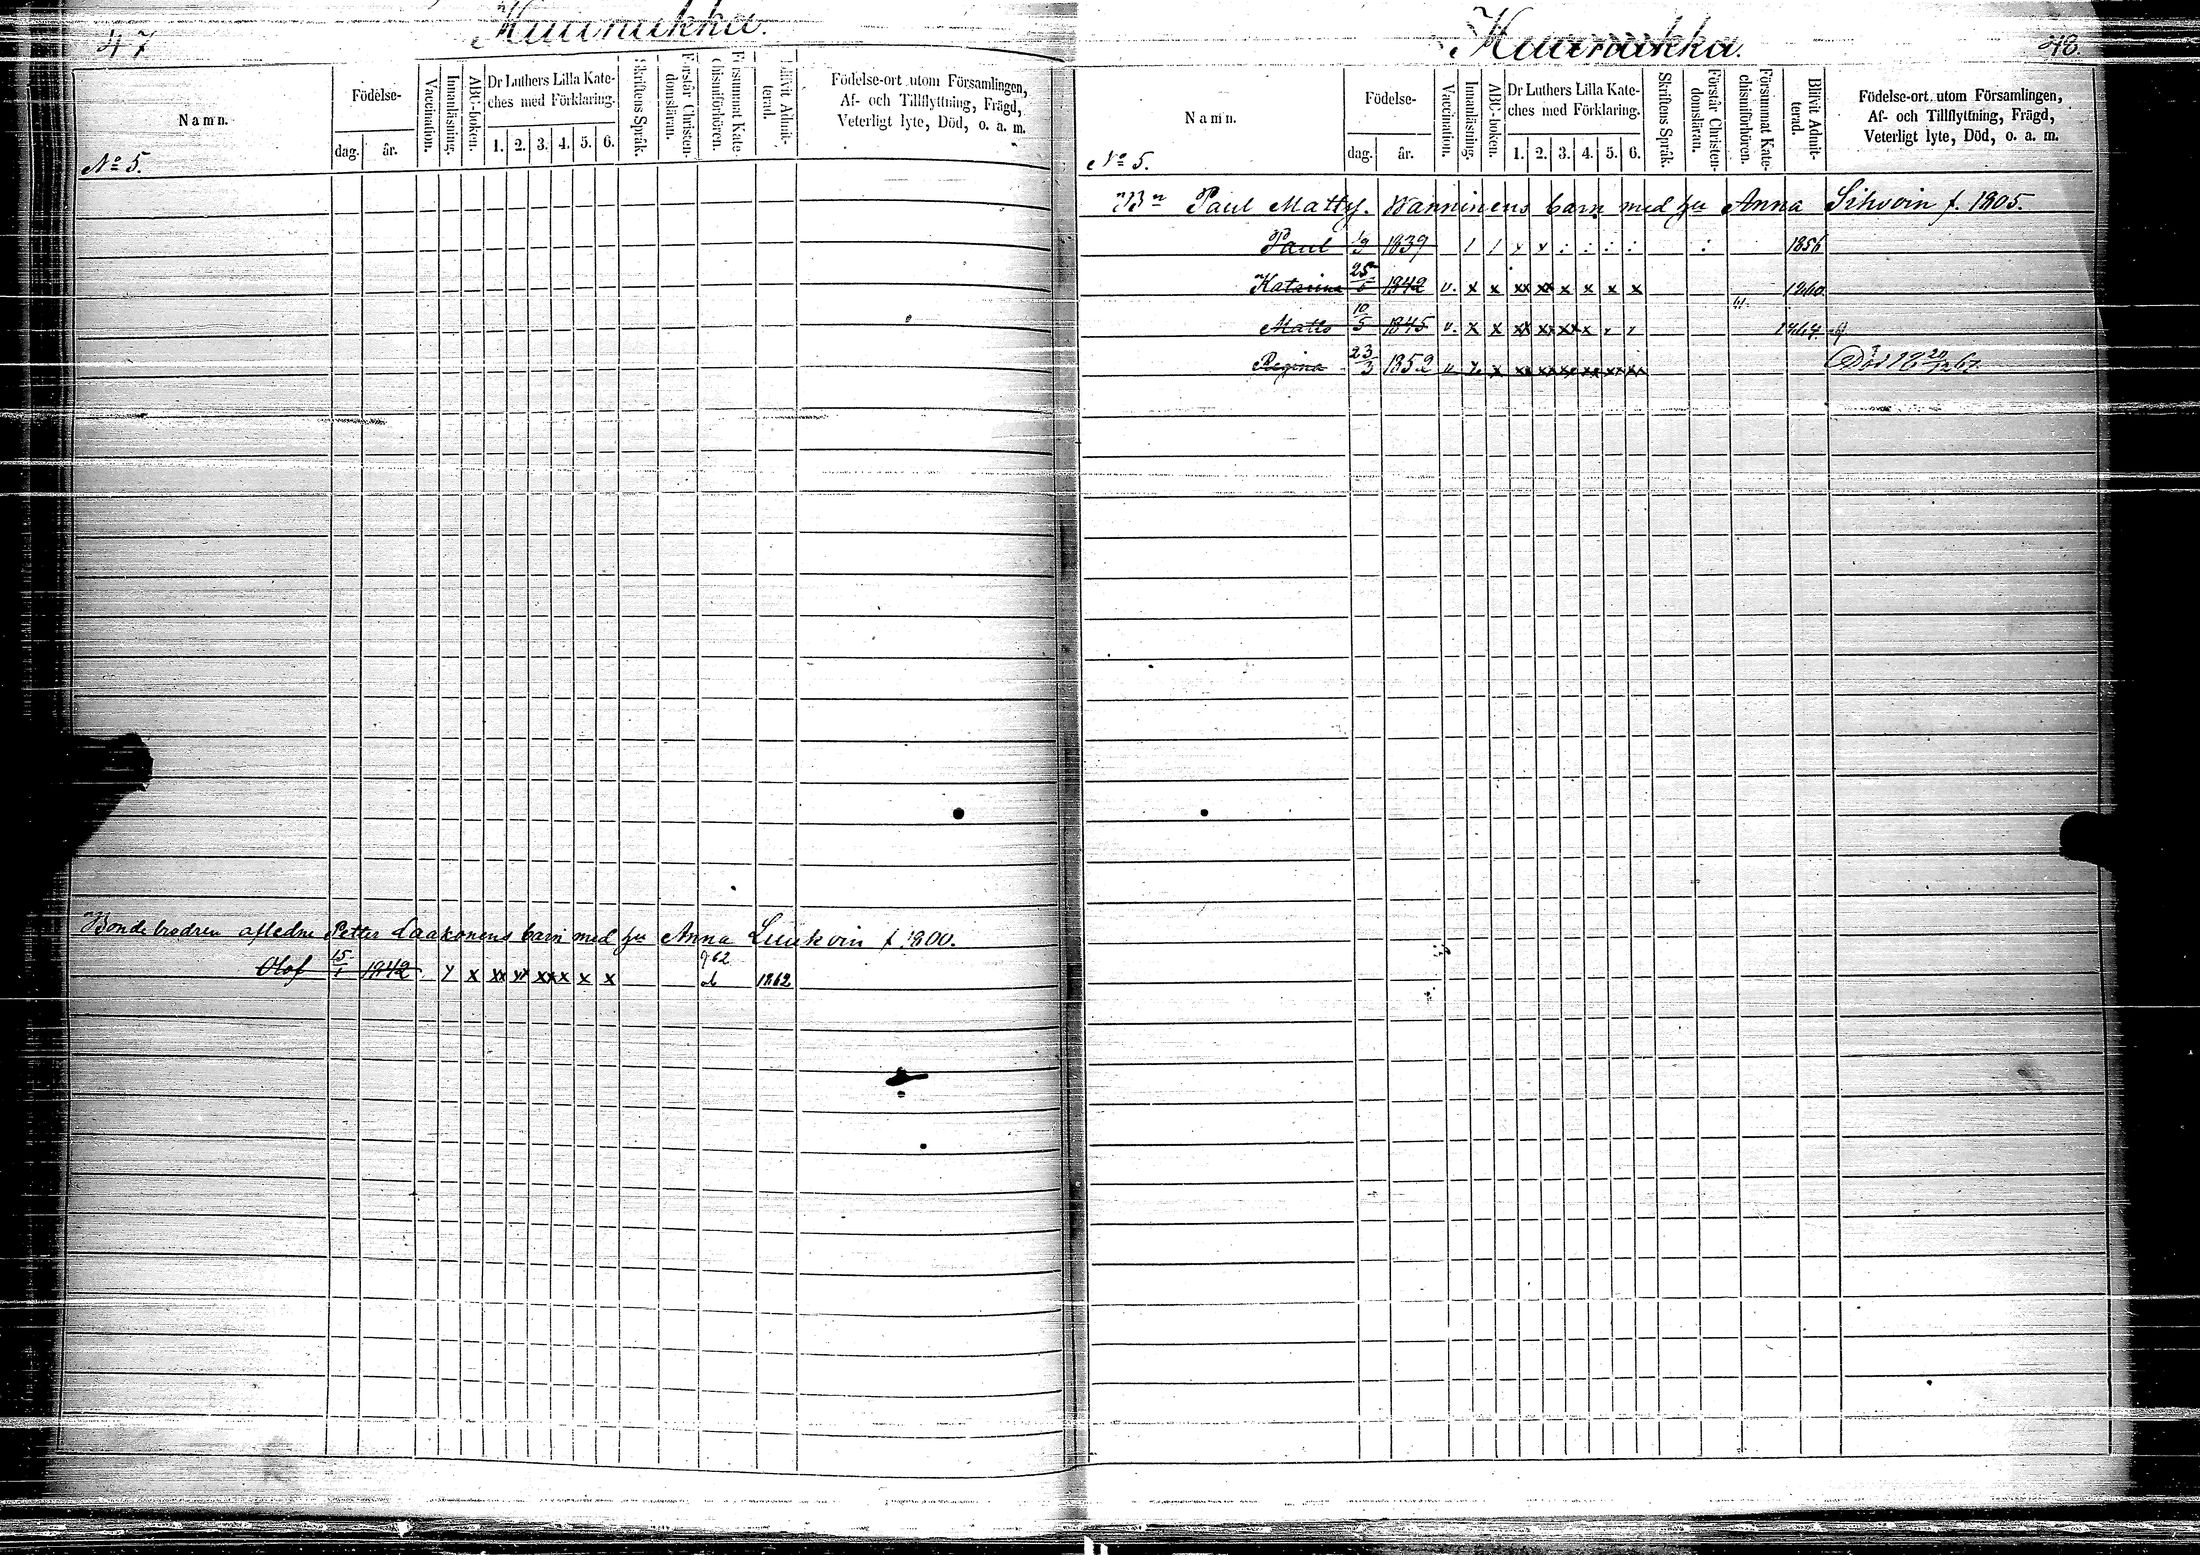 47
Kuurnukka.
Namn.
Födelse-
dag.
år.
Vaccination.
Innanläsning.
ABC-boken.
Dr Luthers Lilla Kate-
ches med Förklaring.
1. 2. 3. 4. 5. 6.
Skriftens Språk.
Förstår Christen-
domsläran.
Försummat Kate-
chismiförhören.
Blifvit Admit-
terad.
Födelse-ort utom Församlingen,
Af- och Tillflyttning, Frägd,
Veterligt lyte, Död, o. a. m.
No 5.
Bonde brodren afledne Petter Laakonens barn med hu Anna f. 1800.
Olof 15/1 1842 x x xx xx xxx x x x 1862
48.
Kuurnukka.
Namn.
Födelse-
dag.
år.
Vaccination.
Innanläsning.
ABC-boken.
Dr Luthers Lilla Kate-
ches med Förklaring.
1. 2. 3. 4. 5. 6.
Skriftens Språk.
Förstår Christen-
domsläran.
Försummat Kate-
chismiförhören.
Blifvit Admit-
terad.
Födelse-ort utom Församlingen,
Af- och Tillflyttning, Frägd,
Veterligt lyte, Död, o. a. m.
No 5.
Bn Paul Matts. Wanninens barn med hu Anna Sihvoin f. 1805.
Paul 1/9 1839 / / x x : : : : : 1856
Katarina 25/5 1842 v. x x xx xx x x x x 1860
Matts 10/5 1845 v. x x xx xx xx x x x 1864
Regina 23/3 1852 v x x xx xx xx xx xx xx Död 18 20/12 67.